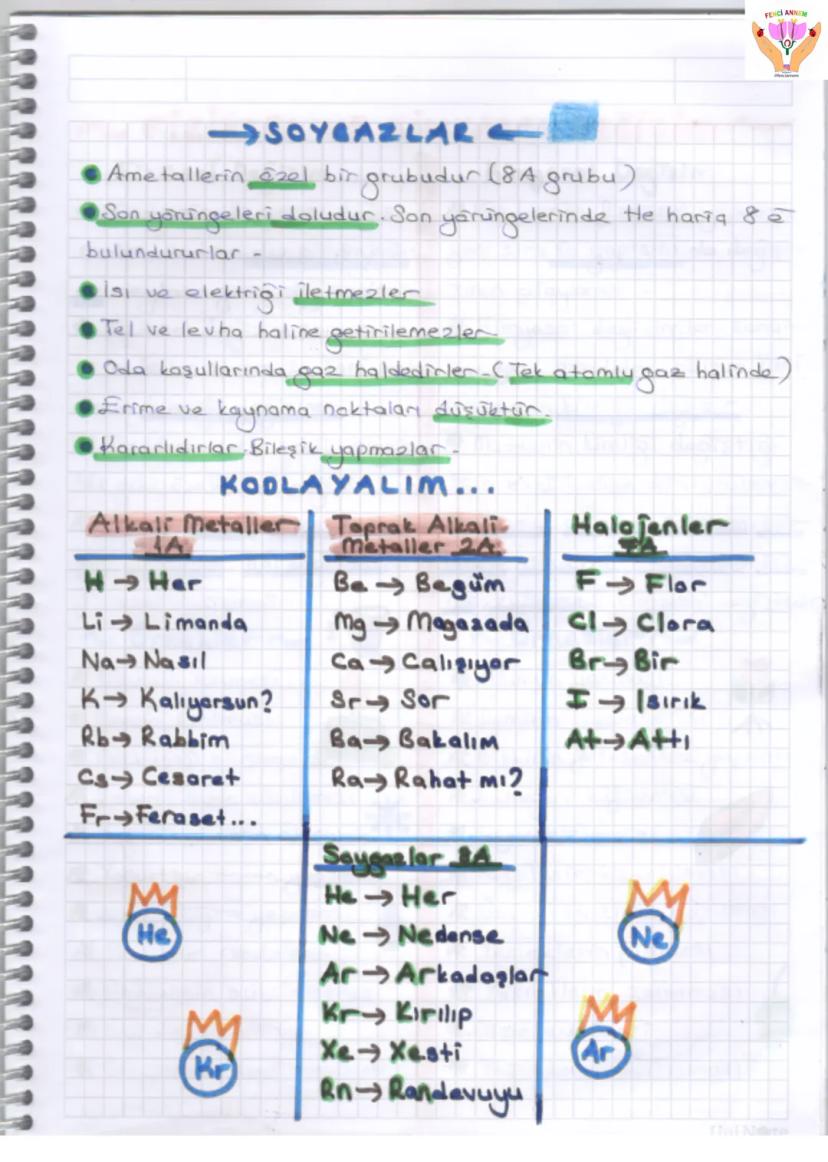 FENCİ ANNEM
→ SOYGAZLAR ←
Ametallerin özel bir grubudur (8A grubu)
Son yörüngeleri doludur. Son yörüngelerinde He hariç 8 e⁻
bulundururlar -
Isı ve elektriği iletmezler
Tel ve levha haline getirilemezler
Oda koşullarında gaz haldedirler - (Tek atomlu gaz halinde)
Erime ve kaynama noktaları düşüktür.
Kararlıdırlar. Bileşik yapmazlar -
KODLAYALIM...
Alkali Metaller
1A
H → Har
Li → Limanda
Na → Nasıl
K → Kalıyorsun?
Rb → Rabbim
Cs → Cesaret
Fr → Feraset...
Toprak Alkali
Metaller 2A
Be → Begüm
Mg → Magazada
Ca → Calışıyor
Sr → Sor
Ba → Bakalım
Ra → Rahat mı?
Halojenler
7A
F → Flor
Cl → Clora
Br → Bir
I → Isırık
At → Attı
Soygazlar 8A
He → Her
Ne → Nedense
Ar → Arkadaşlar
Kr → Kırılıp
Xe → Xesti
Rn → Randevuyu
He
Kr
Ne
Ar